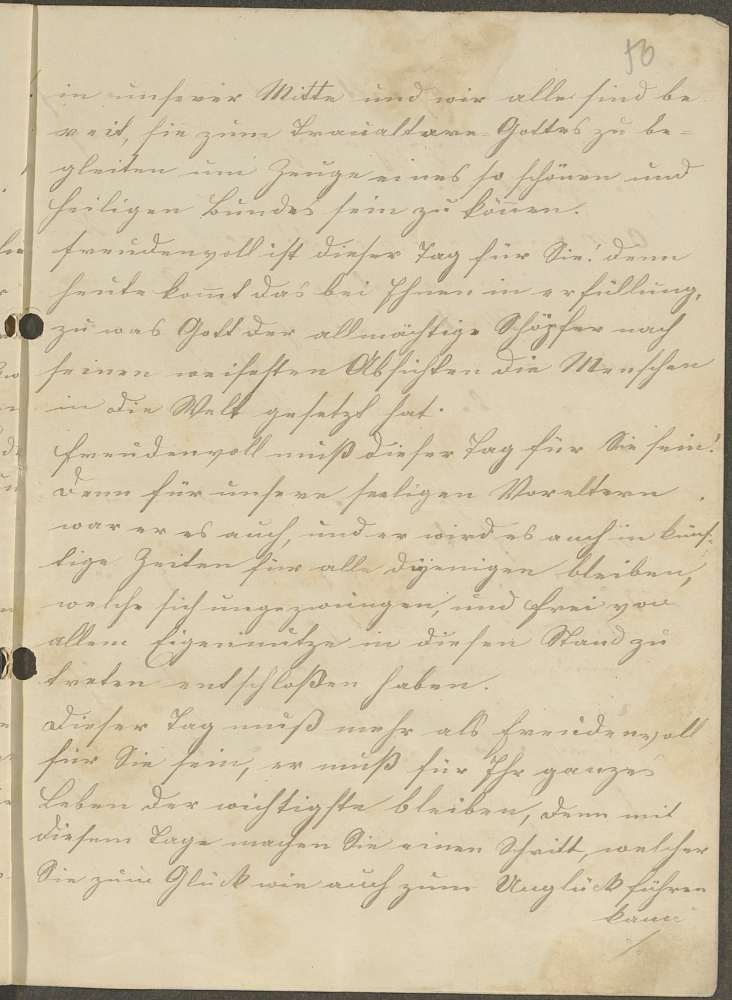 13
in unserer Mitte und wir alle sind be
reit, sie zum Traualtare Gottes zu be=
gleiten um Zeuge eines so schönen und
heiligen Bundes sein zu können.
Freudenvoll ist dieser Tag für Sie! denn
heute kom̄t das bei Ihnen in erfüllung,
zu was Gott der allmächtige Schöpfer nach
seinen weisesten Absichten die Menschen
in die Welt gesetzt hat.
Freudenvoll muß dieser Tag für Sie sein!
denn für unsere seeligen Voreltern
war er es auch, und er wird es auch in künf=
tige Zeiten für alle dijenigen bleiben,
welche sich ungezwungen, und frei von
allem Eigennutze in diesen Stand zu
treten entschloßen haben.
Dieser Tag muß mehr als freudenvoll
für Sie sein, er muß für Ihr ganzes
Leben der wichtigste bleiben, denn mit
diesem Tage machen Sie einen Schritt, welcher
Sie zum Glück wie auch zum Unglück führen
kann